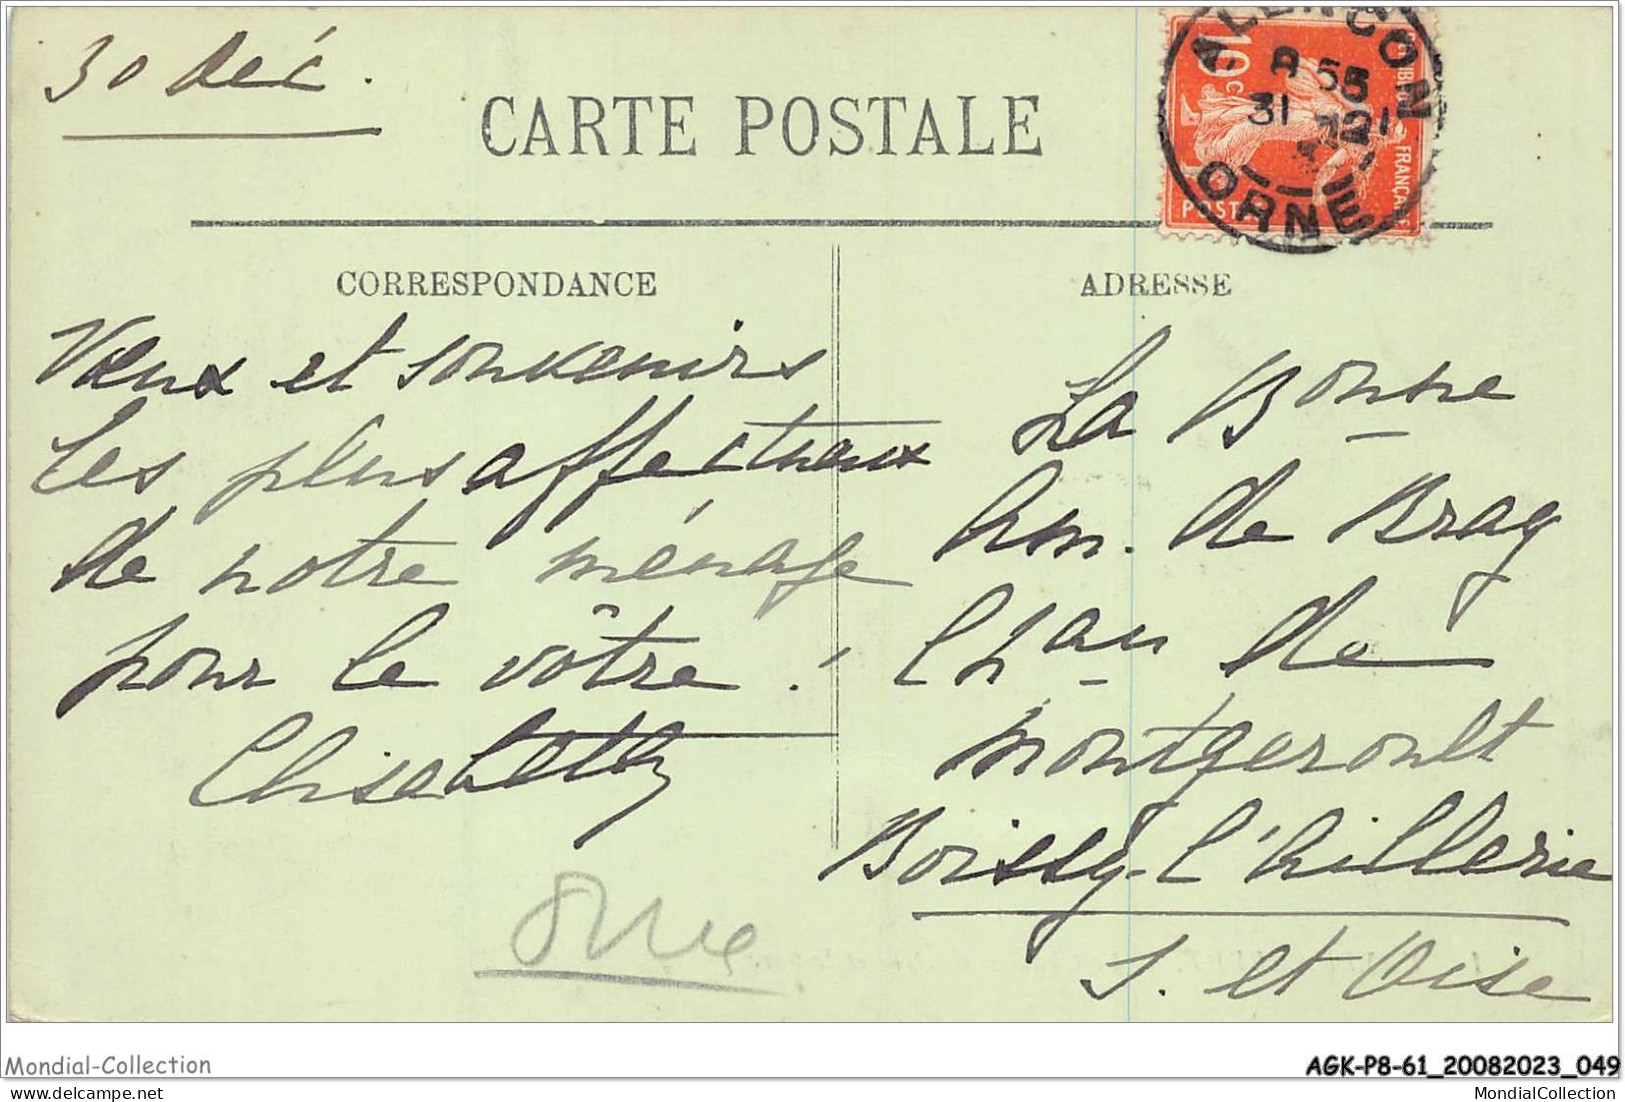 30 déc.
CARTE POSTALE
ALENÇON
8 55
31 12
ORNE
10 c
POSTES
FRANÇAISE
CORRESPONDANCE
ADRESSE
Vœux et souvenirs
les plus affectueux
de notre ménage
pour le vôtre !
Elisabeth
La Bonne
de Bray
Chau de
Montgeroult
Boissy-l'hillerie
S. et Oise
Orne
Mondial-Collection
AGK-P8-61_20082023_049
MondialCollection